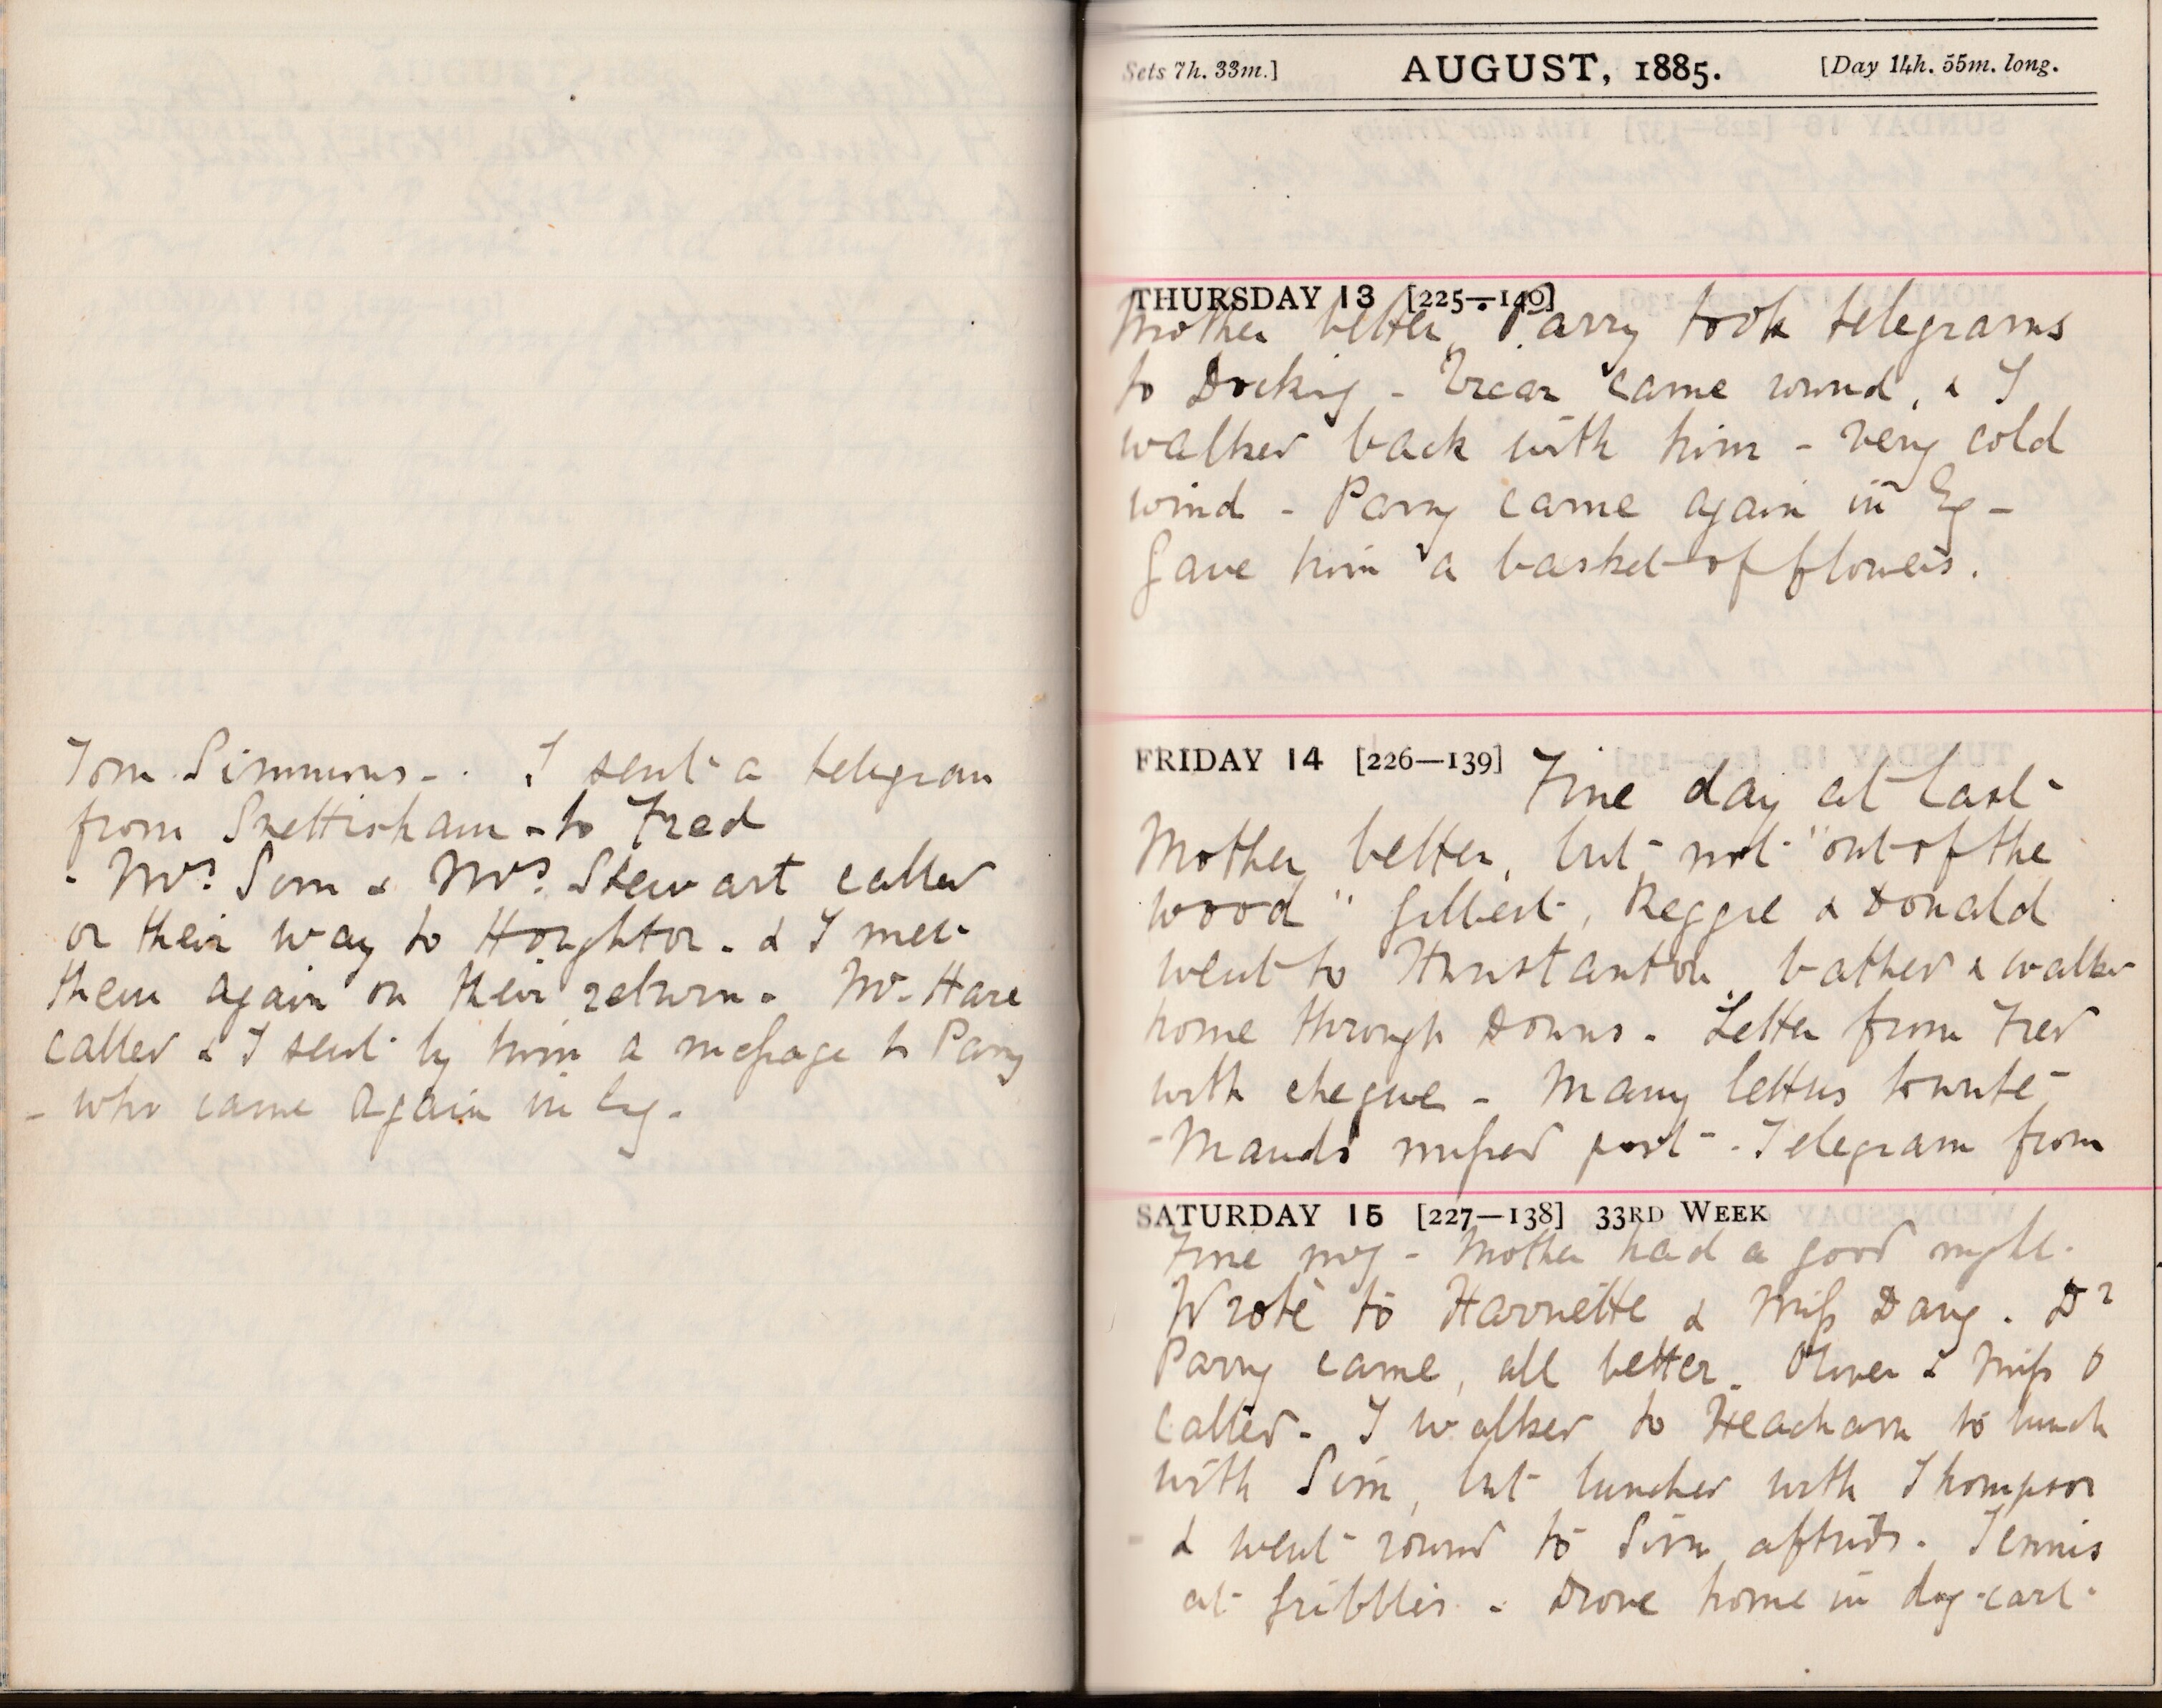 Tom Simmons - . I sent a telegram
from Snettisham - to Fred
- Mrs. Sim & Mrs. Stewart called
on their way to Houghton. & I met
them again on their return. Mr Hare
called & I sent by him a message to Parry
- who came again in Evg.
Sets 7h. 33m.] AUGUST, 1885. [Day 14h. 55m. long.
THURSDAY 13 [225—140]
Mother better, Parry took telegrams
to Docking - Vicar came round, & I
walked back with him - very cold
wind - Parry came again in Evg -
Gave him a basket of flowers.
FRIDAY 14 [226—139] Fine day at last -
Mother better, but not "out of the
wood" Gilbert, Reggie & Donald
went to Hunstanton, bathed & walked
home through Downs. Letter from Fred
with cheque - Many letters to write -
- Maud's missed post - . Telegram from
SATURDAY 15 [227—138] 33RD WEEK
Fine mg - Mother had a good night.
Wrote to Harriette & Miss Davy. Dr
Parry came, all better. Oliver & Miss O
called. I walked to Heacham to lunch
with Sim, but lunched with Thompson
& went round to Sim aftwds. Tennis
at Gribbles. - Drove home in dog-cart.